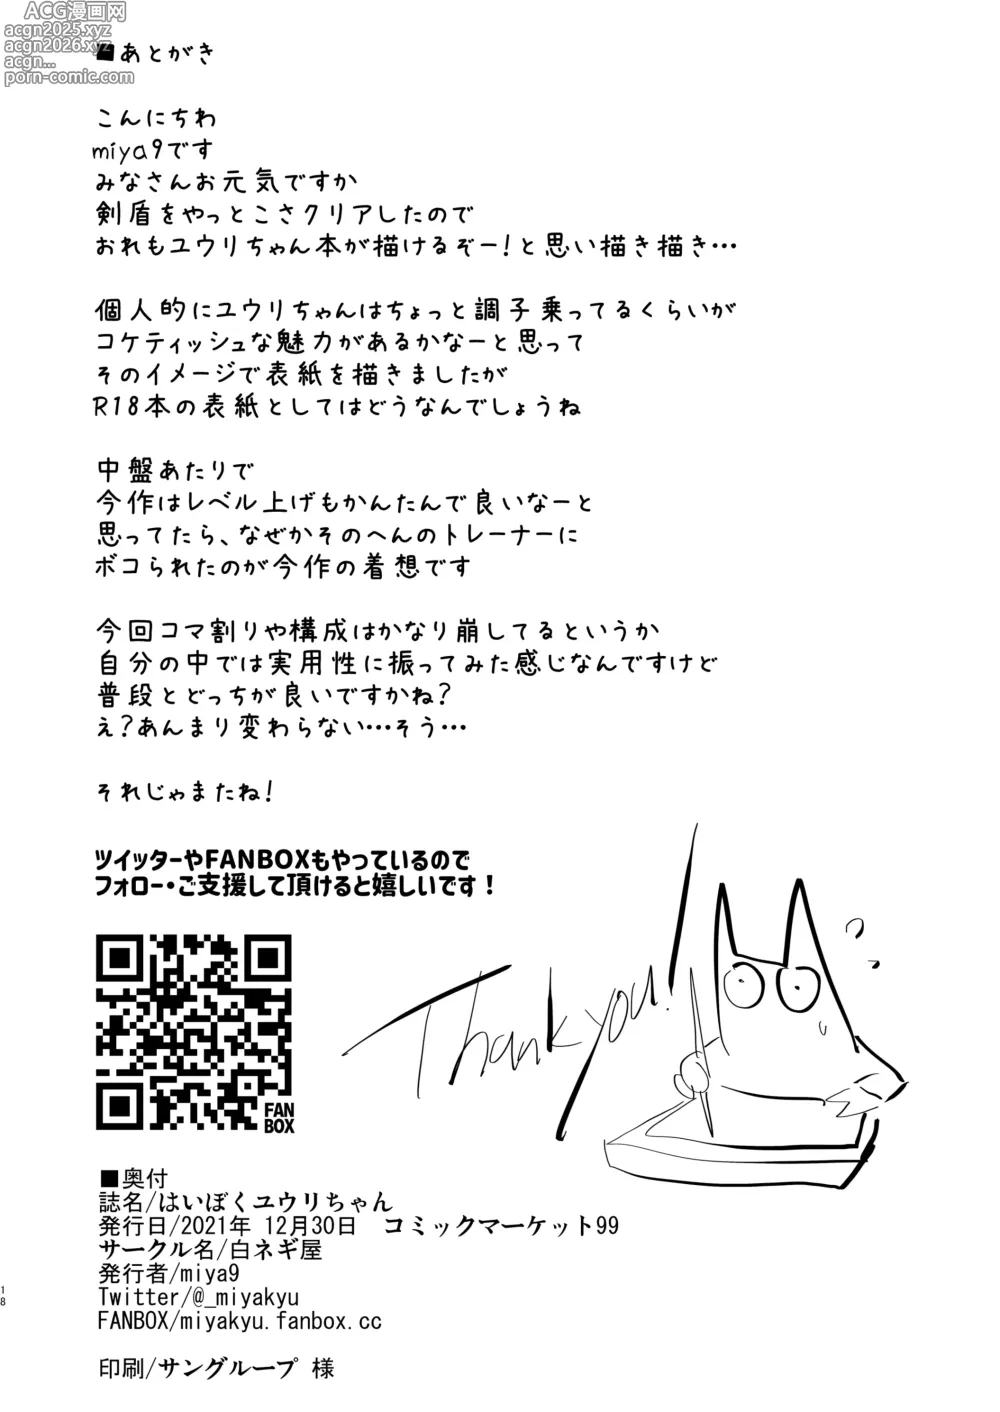 ACG漫画网
acgn2025.xyz
acgn2026.xyz
acgn...
porn-comic.com
■あとがき
こんにちわ
miya9です
みなさんお元気ですか
剣盾をやっとこさクリアしたので
おれもユウリちゃん本が描けるぞー!と思い描き描き…
個人的にユウリちゃんはちょっと調子乗ってるくらいが
コケティッシュな魅力があるかなーと思って
そのイメージで表紙を描きましたが
R18本の表紙としてはどうなんでしょうね
中盤あたりで
今作はレベル上げもかんたんで良いなーと
思ってたら、なぜかそのへんのトレーナーに
ボコられたのが今作の着想です
今回コマ割りや構成はかなり崩してるというか
自分の中では実用性に振ってみた感じなんですけど
普段とどっちが良いですかね?
え?あんまり変わらない…そう…
それじゃまたね!
ツイッターやFANBOXもやっているので
フォロー・ご支援して頂けると嬉しいです!
Thank you!
FAN
BOX
■奥付
誌名/はいぼくユウリちゃん
発行日/2021年 12月30日 コミックマーケット99
サークル名/白ネギ屋
発行者/miya9
Twitter/@_miyakyu
FANBOX/miyakyu.fanbox.cc
印刷/サングループ 様
18